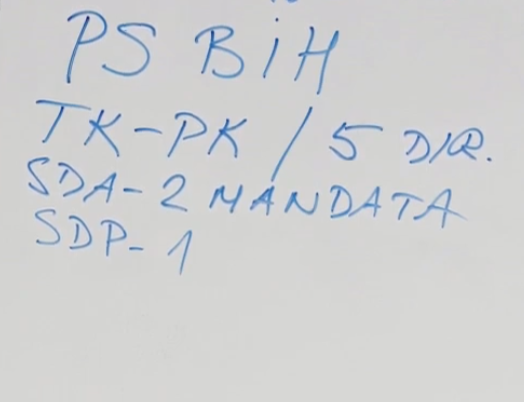 PS BiH
TK-PK / 5 DIR.
SDA-2 MANDATA
SDP-1